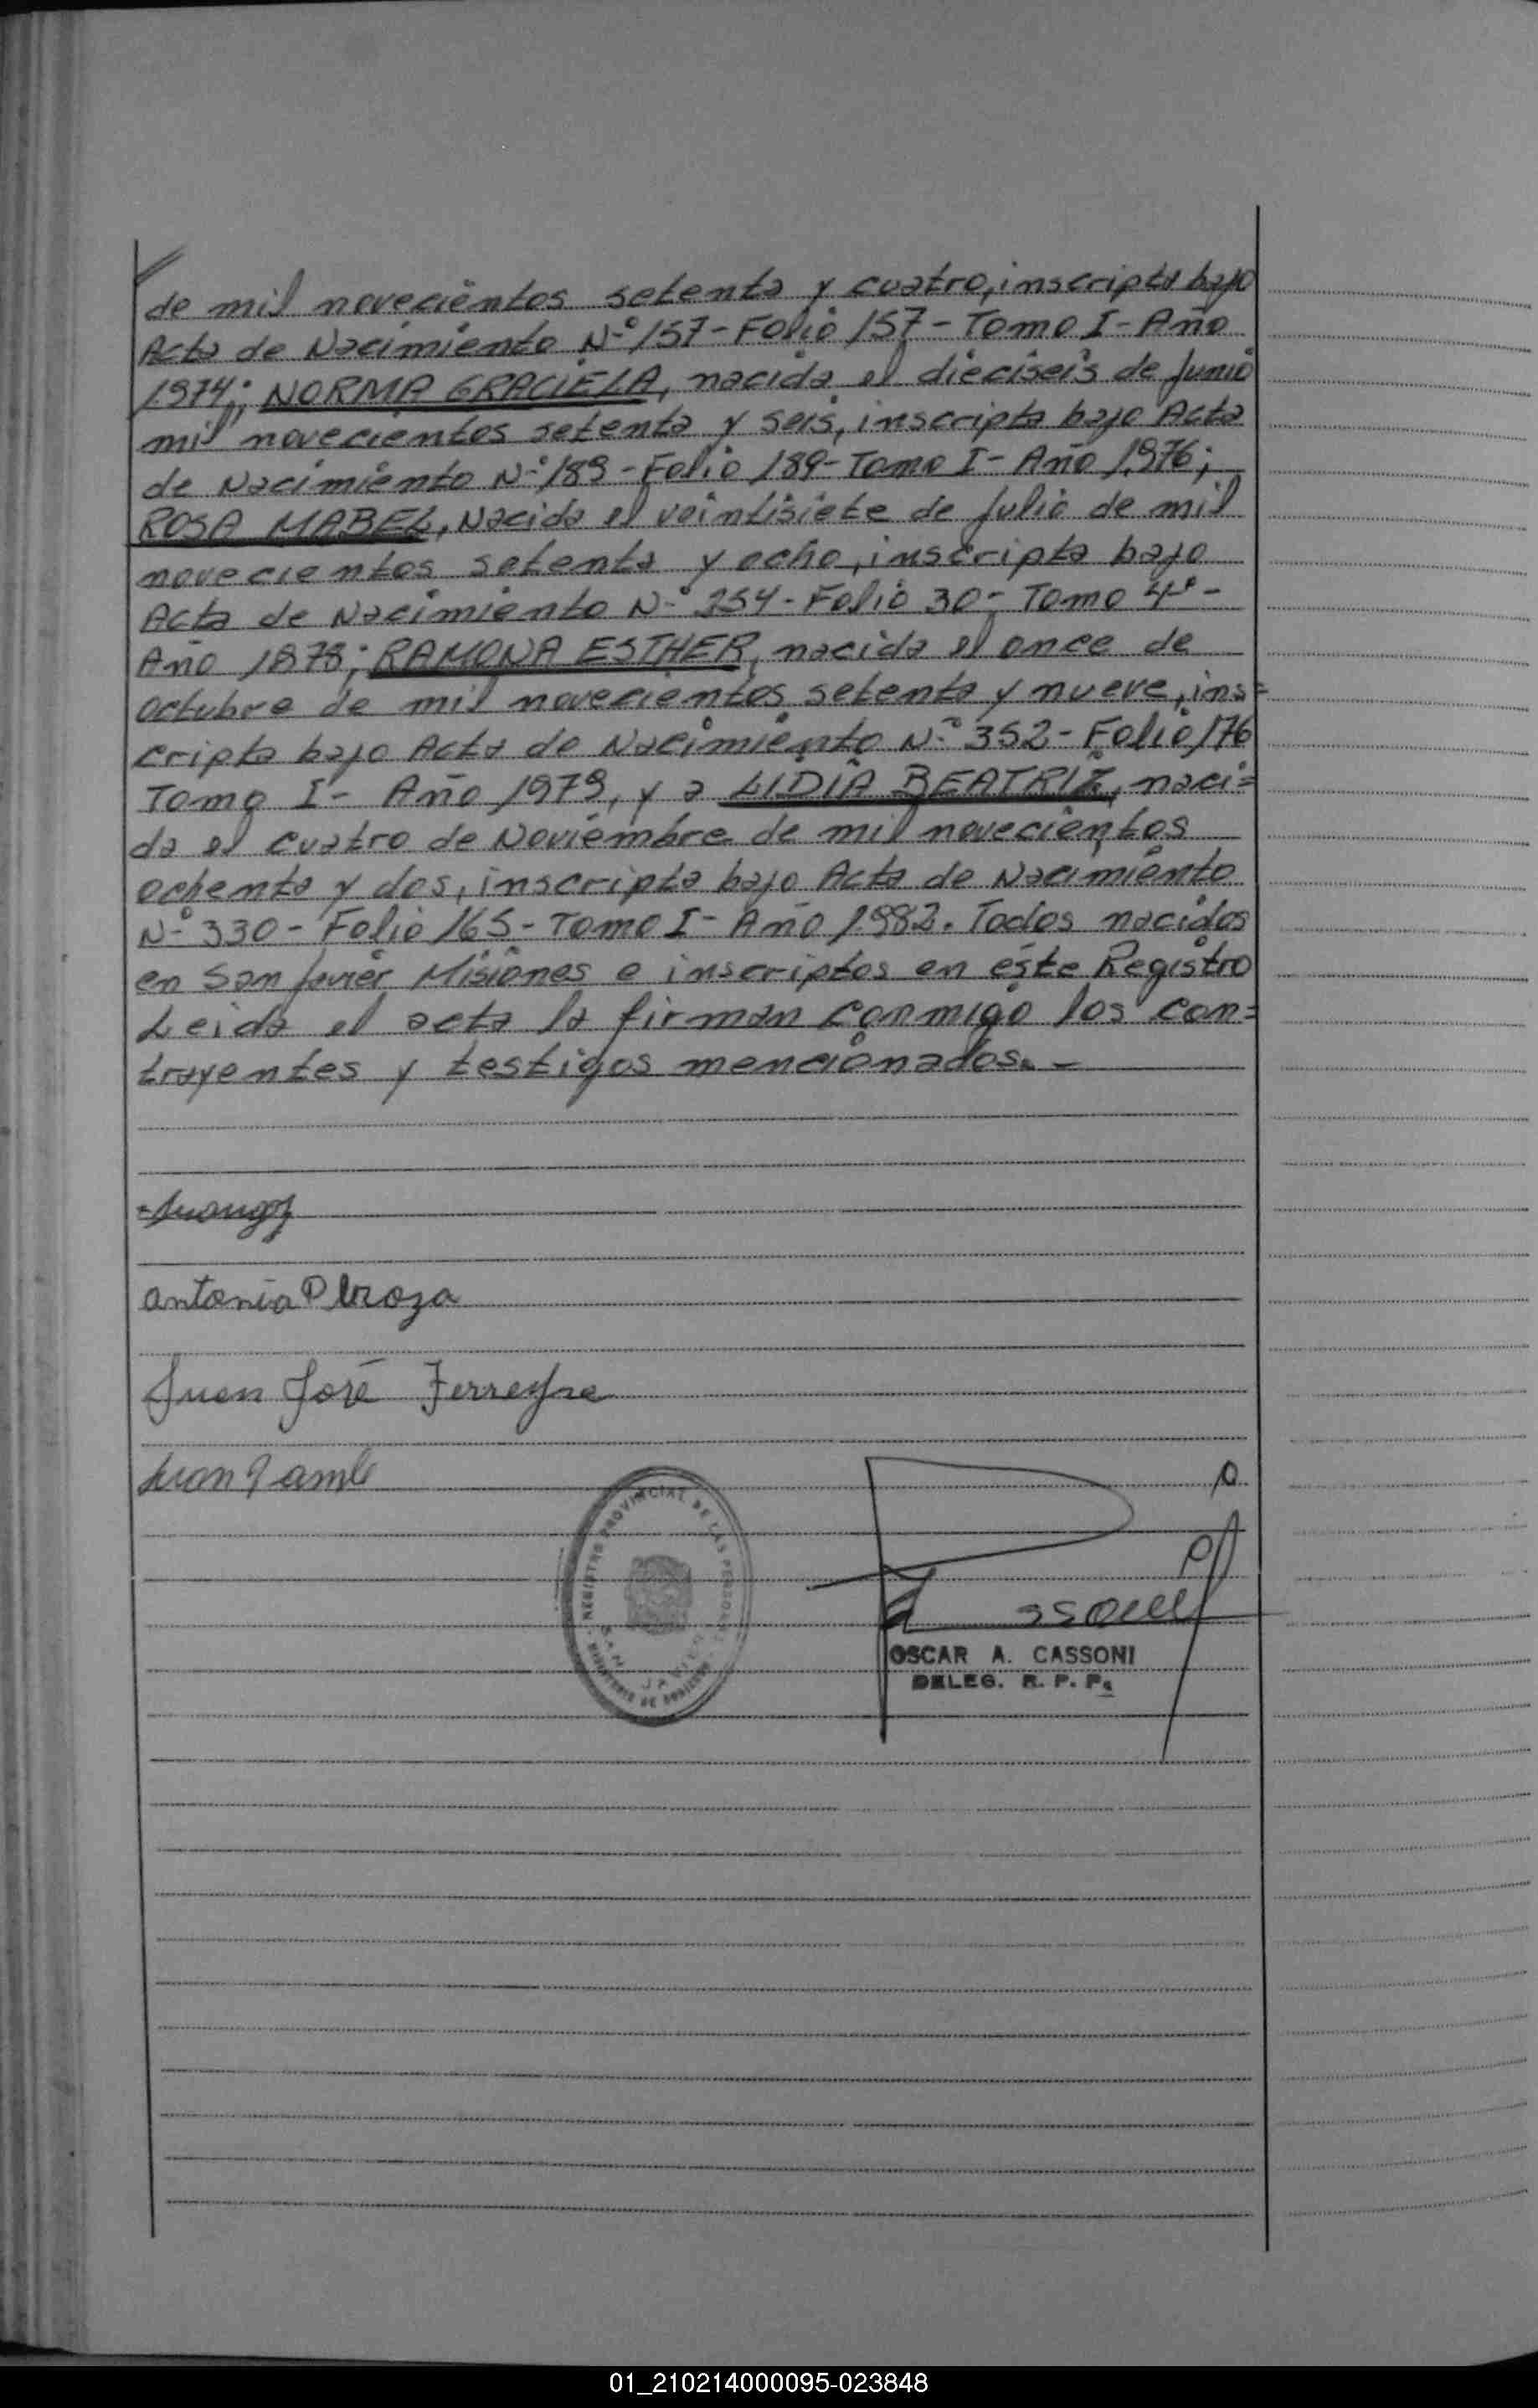 de mil novecientos setenta y cuatro, inscripta bajo
Acta de Nacimiento N-º 157- Folio 157- Tomo I- Año
1974; NORMA GRACIELA, nacida el dieciseis de Junio
mil novecientos setenta y seis, inscripta bajo Acta
de Nacimiento N-º 189- Folio 189- Tomo I- Año 1976;
ROSA MABEL, Nacida el veintisiete de Julio de mil
novecientos setenta y ocho, inscripta bajo
Acta de Nacimiento N-º 254- Folio 30- Tomo 4º-
Año 1978; RAMONA ESTHER, nacida el once de
octubre de mil novecientos setenta y nueve, ins=
cripta bajo Acta de Nacimiento N-º 352- Folio 176
Tomo I- Año 1979, y a LIDIA BEATRIZ, naci=
da el cuatro de Noviembre de mil novecientos
ochenta y dos, inscripta bajo Acta de Nacimiento
N-º 330- Folio 165- Tomo I- Año 1982. Todos nacidos
en San Javier Misiones e inscriptos en éste Registro
Leida el acta la firman conmigo los con=
trayentes y testigos mencionados.-
antonia
Juan José Ferreyra
Juan
REGISTRO PROVINCIAL DE LAS PERSONAS
SAN JAVIER
OSCAR A. CASSONI
DELEG. R. P. P.
01_210214000095-023848